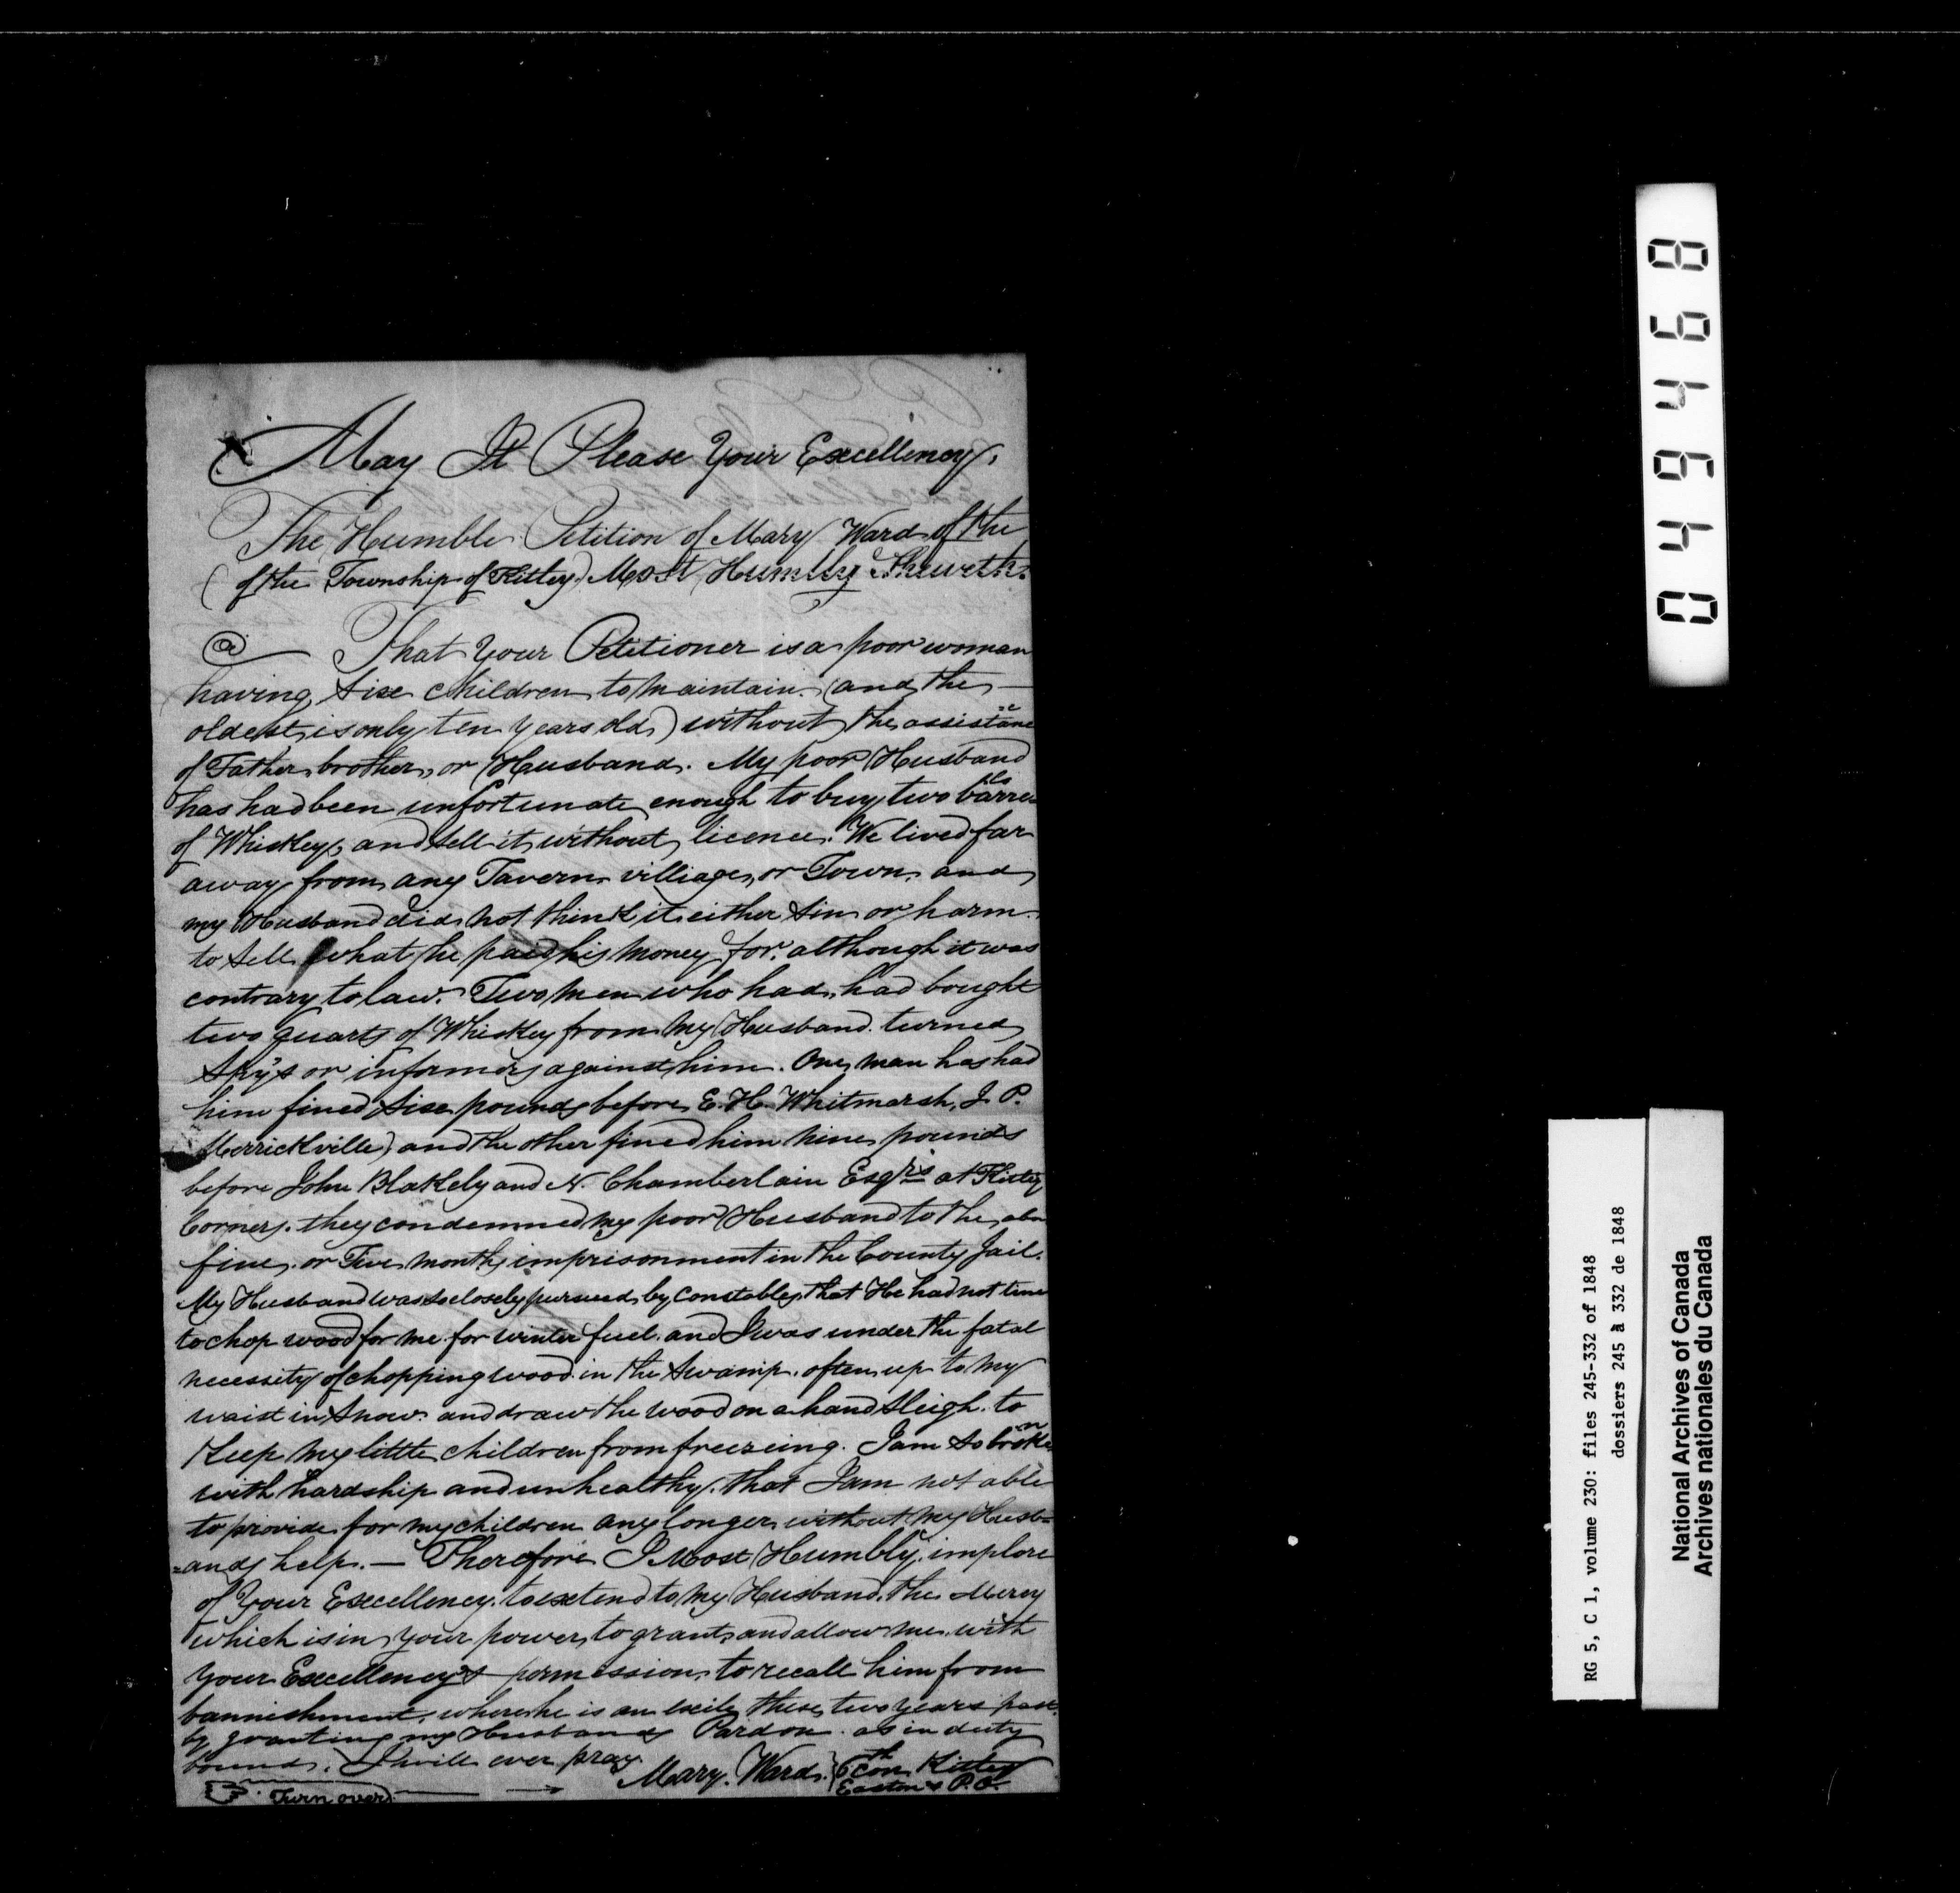 May It Please Your Excellency,
The Humble Petition of Mary Ward of the
(of the Township of Kitley) Most Humlly Sheweth.
That Your Petitioner is a poor woman
having Six children to maintain. (and the —
oldest is only ten years old) without the assistance
of Father, brother, or Husband. My poor Husband
has had been unfortunate enough to buy two barrels
of Whiskey, and sell it without licence. We lived far
away from any Tavern villiage, or Town, and
my Husband did not think it either sin or harm
to sell what he paid his money for. although it was
contrary to law. Two men who had, had bought
two quarts of Whiskey from my Husband. turned
Spy's or informers against him. One man has had
him fined six pounds before E. H. Whitmarsh, J. P.
Merrickville) and the other fined him nine pounds
before John Blakely and N. Chamberlain Esqrs at Kitley
Corners. they condemned my poor Husband to the
fine, or Five months imprisonment in the County Jail.
My Husband was so closely pursued by Constables, that He had not time
to chop wood for me for winter fuel. and I was under the fatal
necessity of chopping wood in the swamp. often up to my
waist in snow. and draw the wood on a hand sleigh. to
Keep my little children from freezeing. I am so broken
with hardship and unhealthy, that I am not able
to provide for my children any longer without my Husb=
=ands help. — Therefore I Most Humbly implore
of Your Excellency. to extend to my Husband. the Mercy
which is in your power, to grant, and allow me, with
your Excellency's permession, to recall him from
bannishment, where he is an exile these two years past.
by granting my Husbands Pardon. as in duty
bound. I will ever pray.
Mary. Ward. } 6th Con. Kitley
Easton's P.O.
Turn over)
049468
RG 5, C 1, volume 230: files 245-332 of 1848
dossiers 245 à 332 de 1848
National Archives of Canada
Archives nationales du Canada